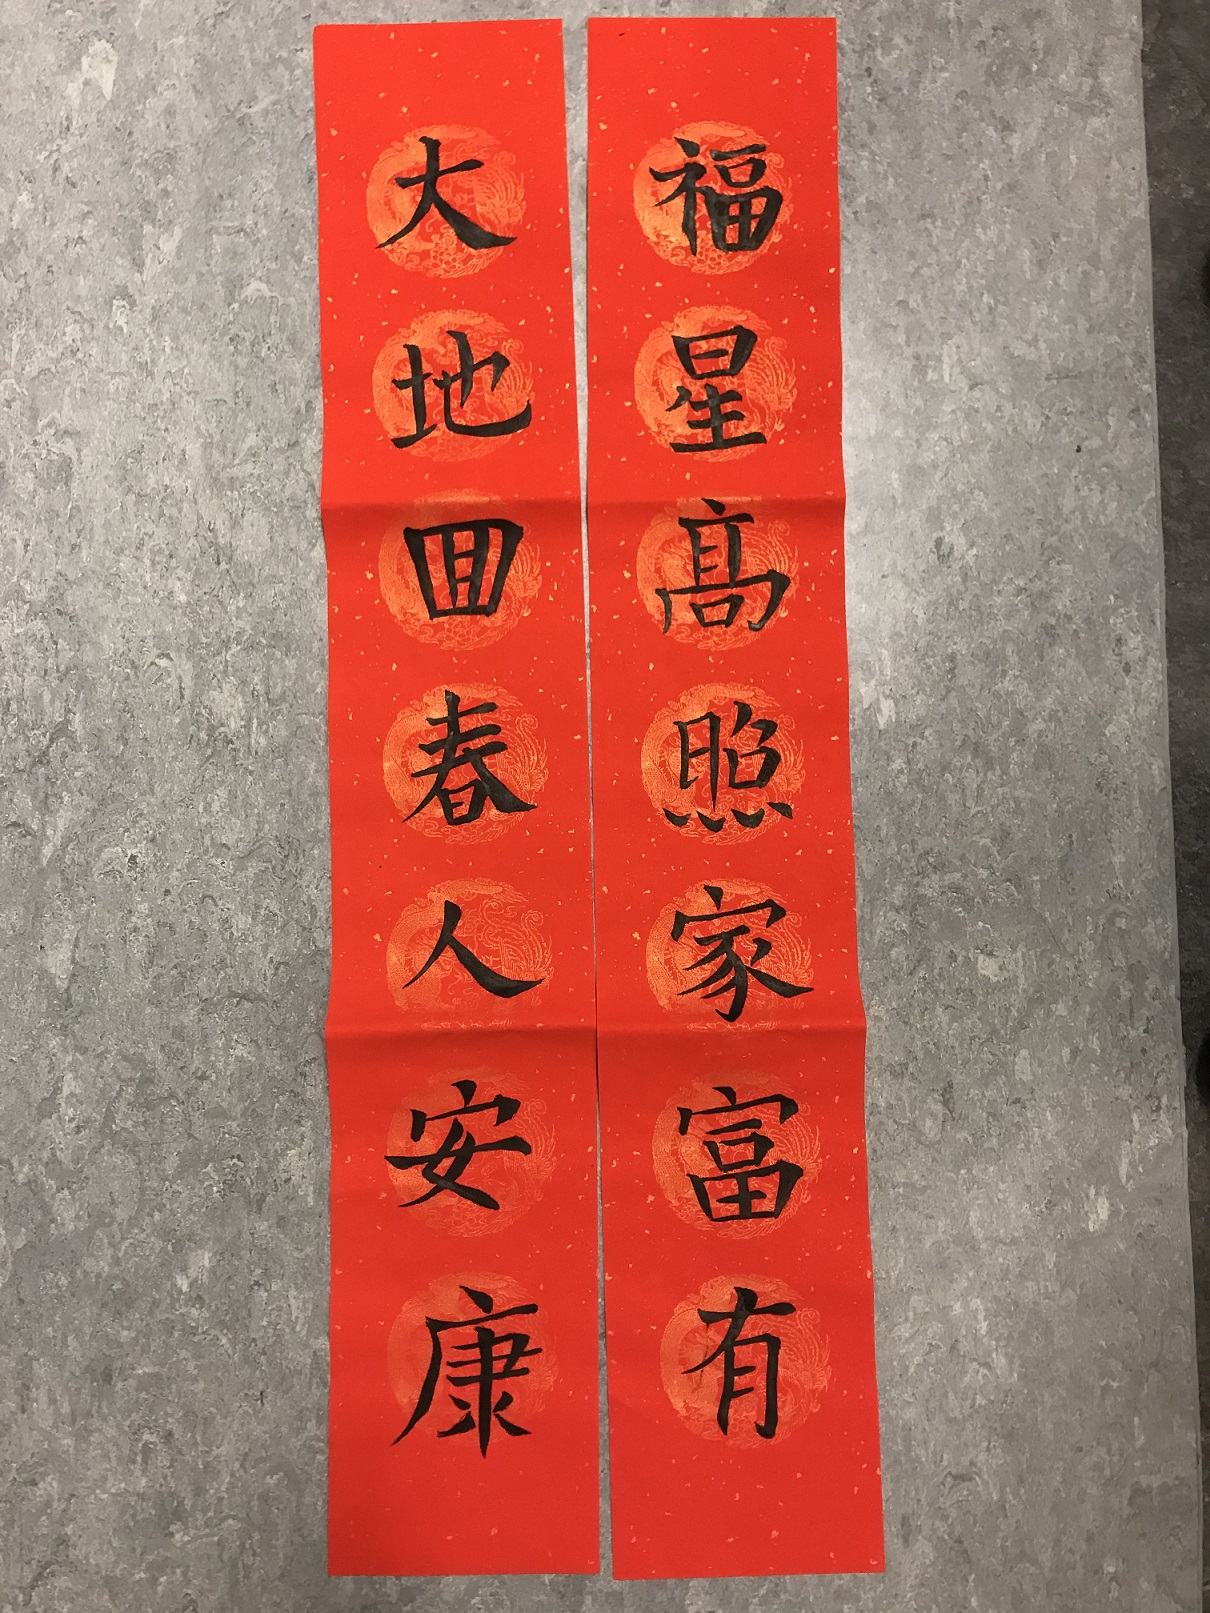 福星髙照家富有
大地囬春人安康